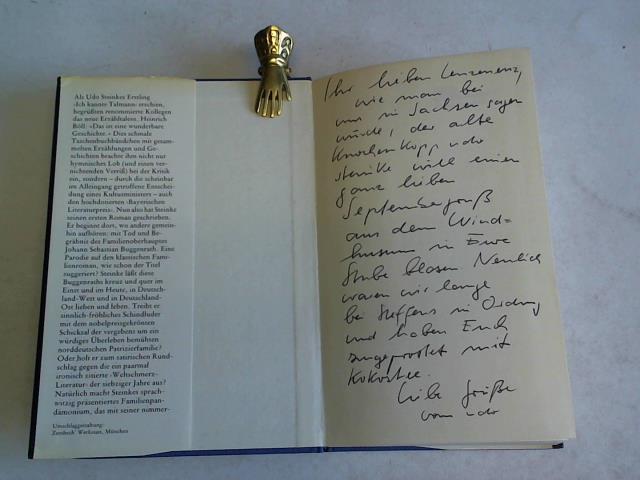 Als Udo Steinkes Erstling
›Ich kannte Talmann‹ erschien,
begrüßten renommierte Kollegen
das neue Erzähltalent. Heinrich
Böll: »Das ist eine wunderbare
Geschichte.« Dies schmale
Taschenbuchbändchen mit gesam-
melten Erzählungen und Ge-
schichten brachte ihm nicht nur
hymnisches Lob (und einen ver-
nichtenden Verriß) bei der Kritik
ein, sondern – durch die scheinbar
im Alleingang getroffene Entschei-
dung eines Kultusministers – auch
den hochdotierten ›Bayerischen
Literaturpreis‹. Nun also hat Steinke
seinen ersten Roman geschrieben.
Er beginnt dort, wo andere gemein-
hin aufhören: mit Tod und Be-
gräbnis des Familienoberhauptes
Johann Sebastian Buggenrath. Eine
Parodie auf den klassischen Fami-
lienroman, wie schon der Titel
suggeriert? Steinke läßt diese
Buggenraths kreuz und quer im
Einst und im Heute, in Deutsch-
land-West und in Deutschland-
Ost lieben und leben. Treibt er
sinnlich-fröhliches Schindluder
mit dem nobelpreisgekrönten
Schicksal der vergebens um ein
würdiges Überleben bemühten
norddeutschen Patrizierfamilie?
Oder holt er zum satirischen Rund-
schlag gegen die ein paarmal
ironisch zitierte ›Weltschmerz-
Literatur‹ der siebziger Jahre aus?
Natürlich macht Steinkes sprach-
witzig präsentiertes Familienpan-
dämonium, das mit seiner nimmer-
Umschlaggestaltung:
Zembsch' Werkstatt, München
Ihr lieben
wie man bei
uns in Sachsen sagen
würde, der alte
Knochenkopp udo
steinke will einen
ganz lieben
Septembergruß
aus dem Wind=
husum in Eure
Stube blasen Neulich
waren wir lange
bei Steffens in Ordnung
und haben Euch
zugeprostet mit
Kokostee.
Liebe Grüße
von udo